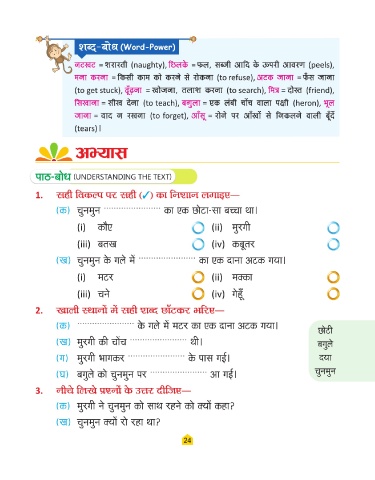 शब्द-बोध (Word-Power)
नटखट = शरारती (naughty), छिलके = फल, सब्जी आदि के ऊपरी आवरण (peels),
मना करना = किसी काम को करने से रोकना (to refuse), अटक जाना = फँस जाना
(to get stuck), ढूँढ़ना = खोजना, तलाश करना (to search), मित्र = दोस्त (friend),
सिखाना = सीख देना (to teach), बगुला = एक लंबी चोंच वाला पक्षी (heron), भूल
जाना = याद न रखना (to forget), आँसू = रोने पर आँखों से निकलने वाली बूँदें
(tears)।
अभ्यास
पाठ-बोध (UNDERSTANDING THE TEXT)
1. सही विकल्प पर सही (✓) का निशान लगाइए—
(क) चुनमुन ........................ का एक छोटा-सा बच्चा था।
(i) कौए (ii) मुरगी
(iii) बतख (iv) कबूतर
(ख) चुनमुन के गले में ........................ का एक दाना अटक गया।
(i) मटर (ii) मक्का
(iii) चने (iv) गेहूँ
2. खाली स्थानों में सही शब्द छाँटकर भरिए—
(क) ........................ के गले में मटर का एक दाना अटक गया।
(ख) मुरगी की चोंच ........................ थी।
(ग) मुरगी भागकर ........................ के पास गई।
(घ) बगुले को चुनमुन पर ........................ आ गई।
छोटी
बगुले
दया
चुनमुन
3. नीचे लिखे प्रश्नों के उत्तर दीजिए—
(क) मुरगी ने चुनमुन को साथ रहने को क्यों कहा?
(ख) चुनमुन क्यों रो रहा था?
24